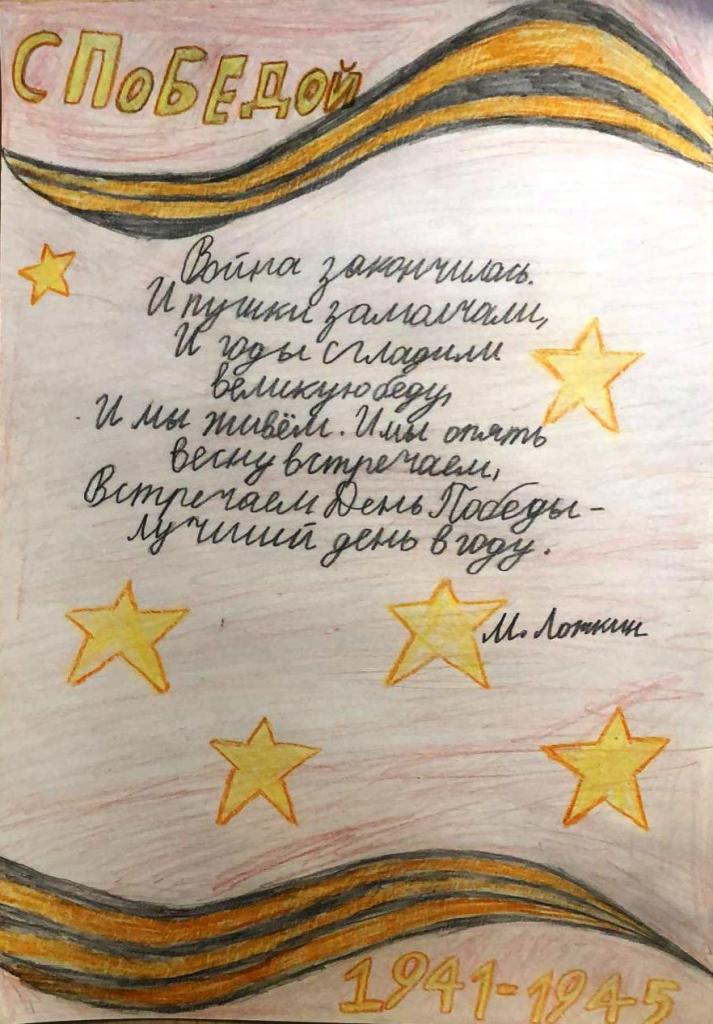 С ПОБЕДОЙ
Война закончилась.
И пушки замолчали,
И годы сгладили
великую беду,
И мы живём. И мы опять
весну встречаем,
Встречаем День Победы -
лучший день в году.
М. Ложкин
1941-1945